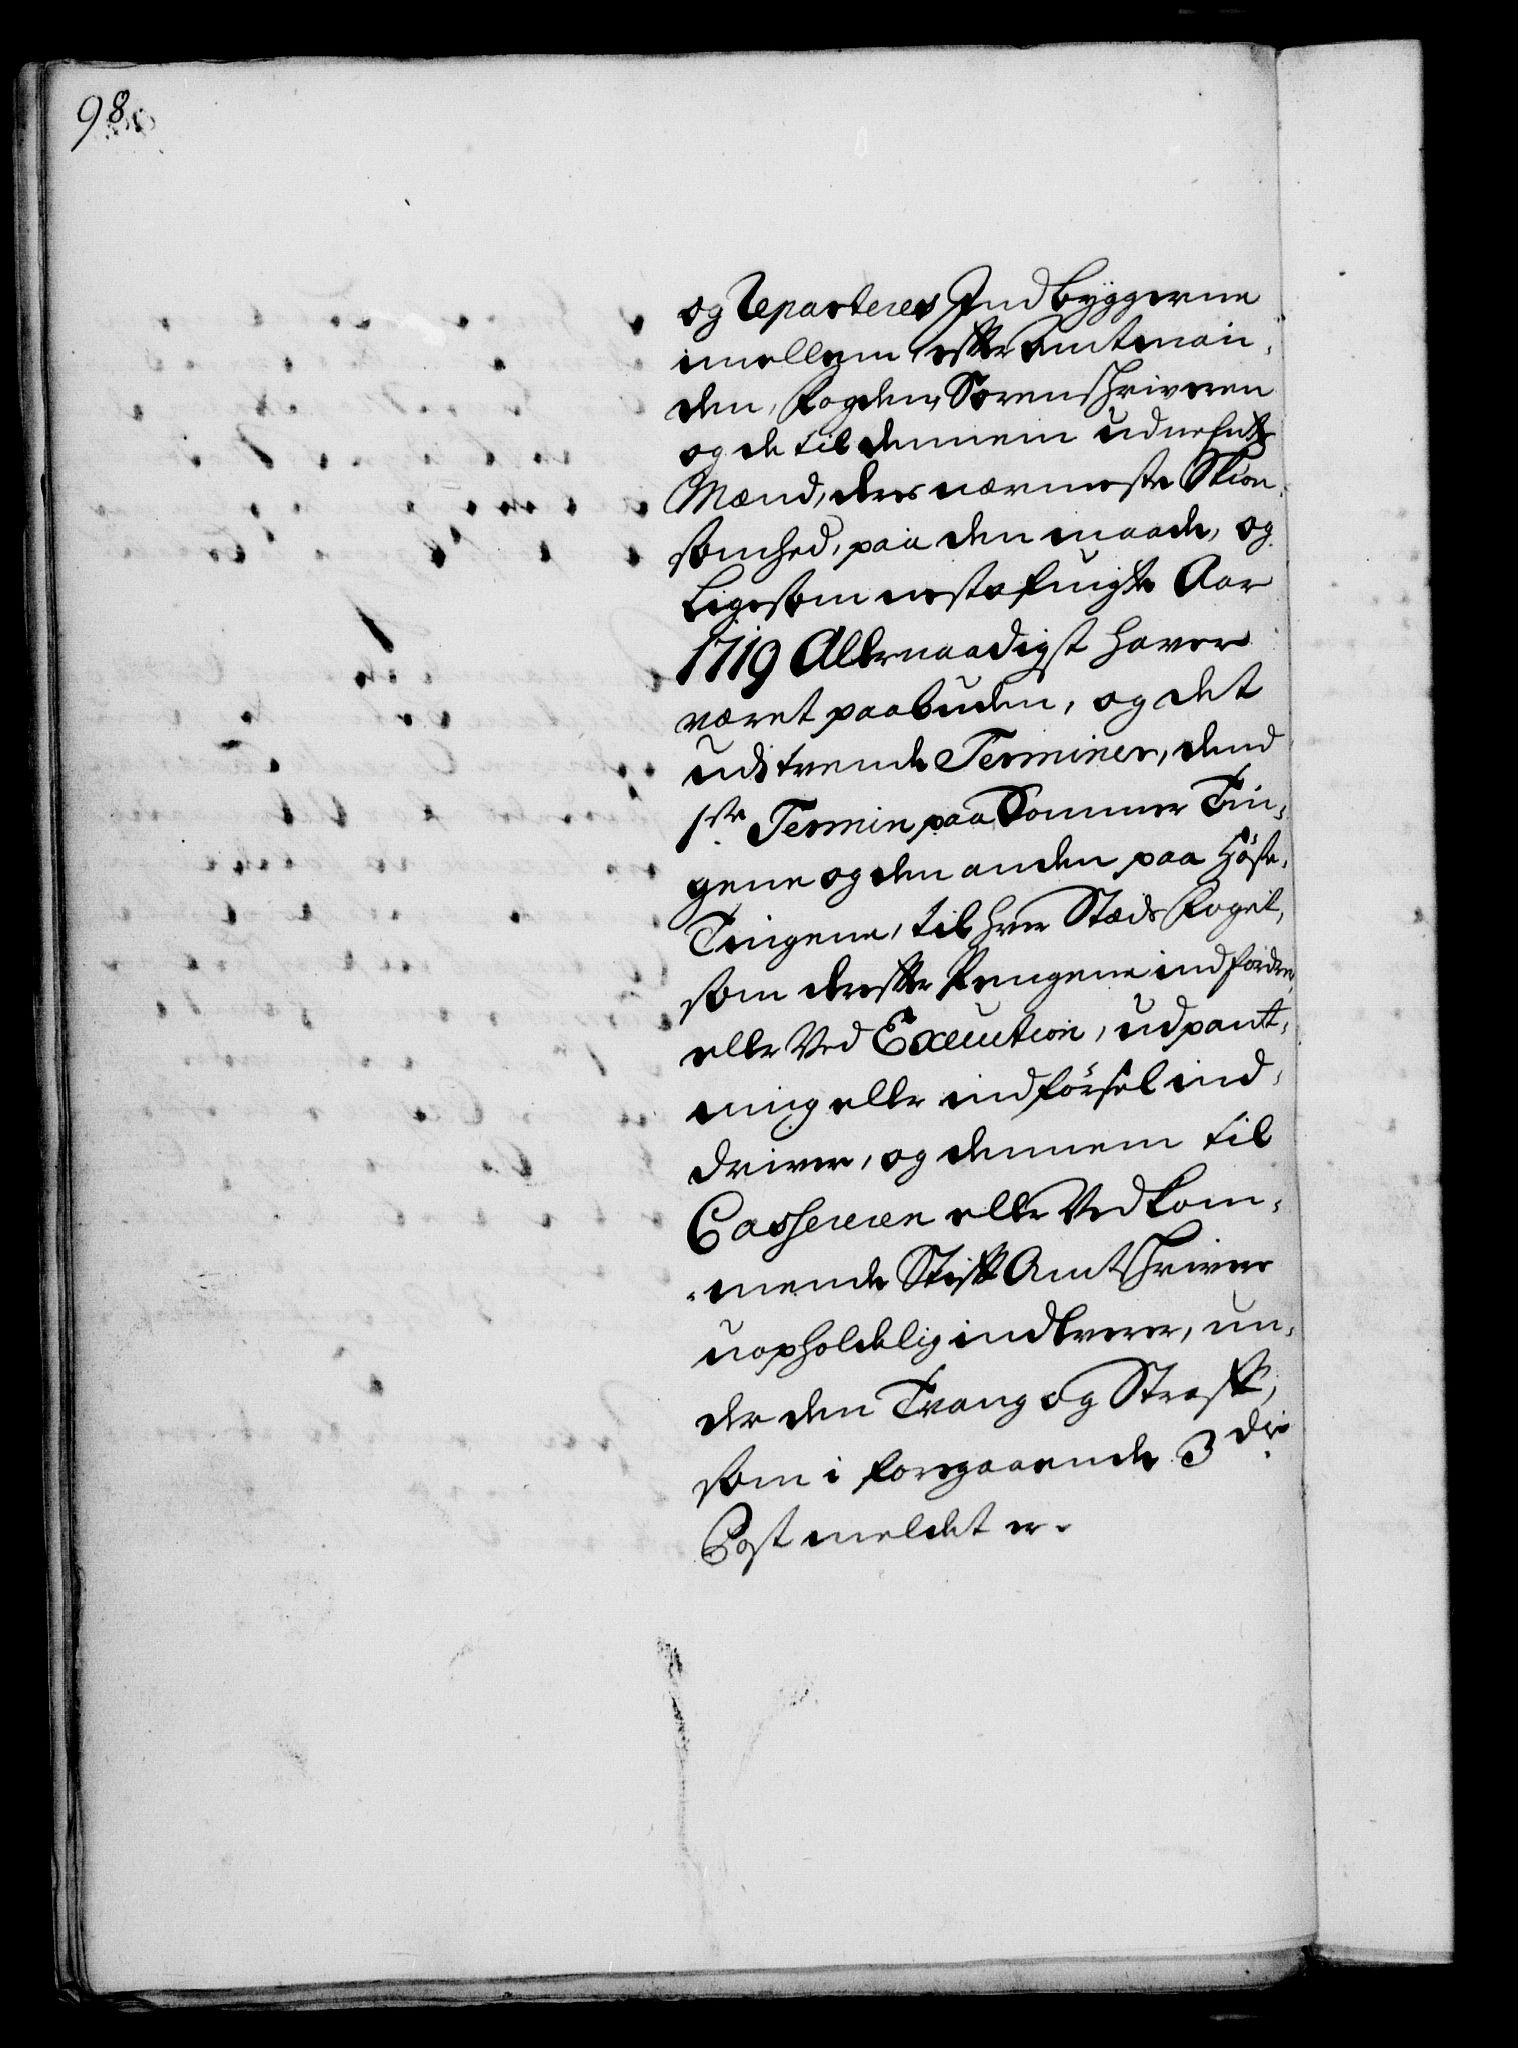 98
og Reparteres Indbyggerne
imellem, efter Amtman-
den, Fogden, Sorenschriveren
og de til dennem udnefnte
Mænd, deres nærmeste Skiøn-
somhed, paa den maade, og
ligesom nestafvigte Aar
1719 Allernaadigst haver
været paabuden, og det
udi tvende Terminer, dend
1ste Termin paa Sommer Tin-
gene og den anden paa Høste-
Tingene, til hver Stæds Foget,
som derefter Pengene indfordrer,
eller Ved Execution, udpant-
ning eller indførsel ind-
driver, og dennem til
Casserere eller Vedkom-
mende Stift Amtschriver
uopholdelig indleverer, un-
der den Tvang og Straff,
som i foregaaende 3die
Post meldet er.